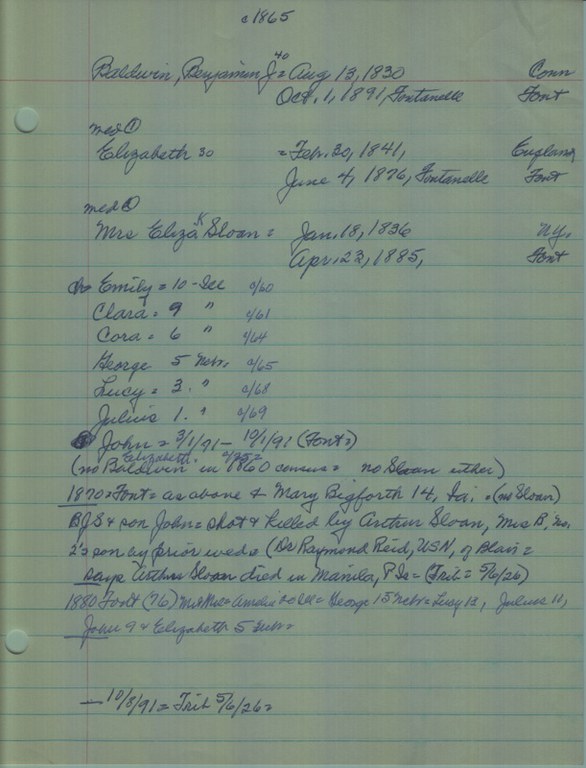 c1865
Baldwin, Benjamin J 40 = Aug 13, 1830 Conn
Oct. 1, 1891, Fontanelle Font
med ①
Elizabeth 30 = Feb. 30, 1841, England
June 4, 1876, Fontanelle Font
med ②
Mrs Eliza K Sloan = Jan. 18, 1836 N.Y.
Apr. 23, 1885, Font
ch = Emily = 10 - Ill c/60
Clara = 9 " c/61
Cora = 6 " c/64
George 5 Nebr. c/65
Lucy = 3. " c/68
Julius 1. " c/69
John = 3/1/71 - 10/1/91 (Font=)
Elizabeth. c/75=
(no Baldwin in 1860 census = no Sloan either)
1870 = Font = as above & Mary Bigforth 14, Ia. = (no Sloan)
BJS & son John = shot & killed by Arthur Sloan, Mrs B, no.
2's son by prior wed = (Dr Raymond Reid, USN, of Blair =
says Arthur Sloan died in Manila, P Is = (Trib = 5/6/26)
1880 Font (76) George 15 Nebr = Lucy 12, Julius 11,
John 9 & Elizabeth 5 Nebr =
— 10/8/91 = Trib 5/6/26 =